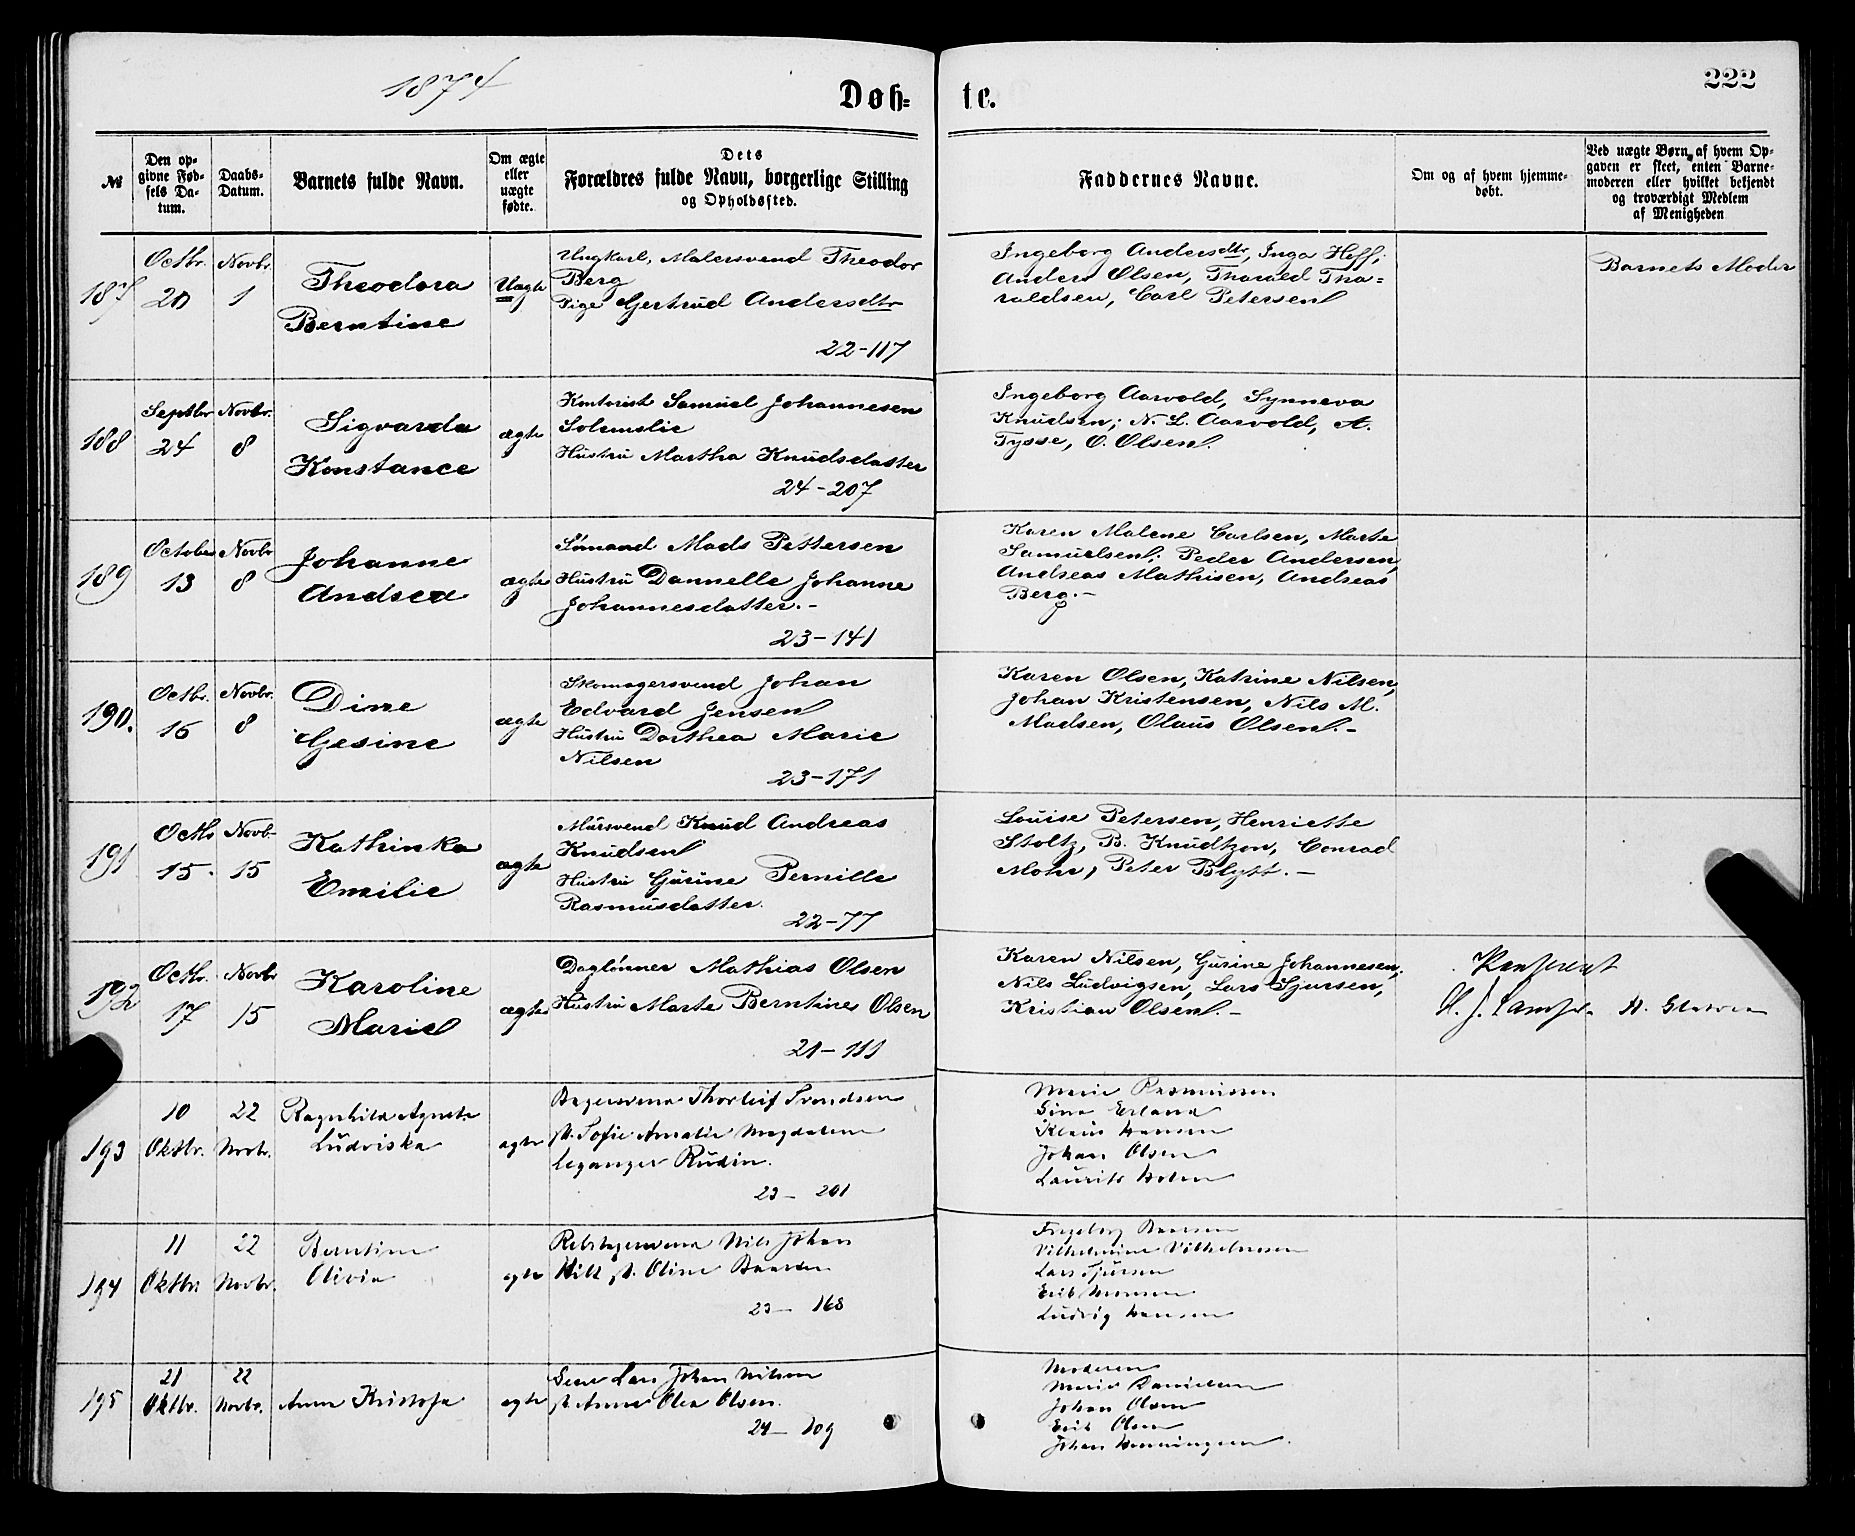 1874
Døb= te.
222
№
Den op-
givne Fød-
sels Da-
tum.
Daabs-
Datum.
Barnets fulde Navn.
Om ægte
eller
uægte
fødte.
Dets
Forældres fulde Navn, borgerlige Stilling
og Opholdssted.
Faddernes Navne.
Om og af hvem hjemme-
døbt.
Ved uægte Børn, af hvem Op-
gaven er skeet, enten Barne-
moderen eller hvilket bekjendt
og troværdigt Medlem
af Menigheden
187
Octbr.
20
Novbr.
1
Theodora
Berntine
Uægte
Ungkarl, Malersvend Theodor
Berg
Pige Gjertrud Andersdtr
22-117
Ingeborg Andersdtr, Inga Hoff;
Anders Olsen, Tharald Tha=
raldsen, Carl Petersen
Barnets Moder
188
Septbr
24
Novbr.
8
Sigvarda
Konstance
ægte
Kontorist Samuel Johannesen
Solemslie
Hustru Martha Knudsdatter
24-207
Ingeborg Aarvold, Synneva
Knudsen; N. L. Aarvold, A.
Tysse, O. Olsen.
189
October
13
Novbr
8
Johanne
Andrea
ægte
Sömand Mads Pettersen
Hustru Dannelle Johanne
Johannesdatter.-
23-141
Karen Malene Carlsen, Marte
Samuelsen; Peder Andersen,
Andreas Mathisen, Andreas
Berg.-
190.
Octbr.
16
Novbr.
8
Dine
Gjesine
ægte
Skomagersvend Johan
Edvard Jensen
Hustru Dorthea Marie
Nilsen
23-171
Karen Olsen, Katrine Nilsen,
Johan Kristensen, Nils M.
Madsen, Olaus Olsen.-
191
Octb
15.
Novb-
15
Kathinka
Emilie
ægte
Mursvend Knud Andreas
Knudsen
Hustru Gurine Pernille
Rasmusdatter.
22-77
Louise Petersen, Henriette
Stoltz, B. Knudtzon, Conrad
Mohr, Peter Blytt.-
192
Octbr.
17
Novbr
15
Karoline
Marie
ægte
Daglönner Mathias Olsen
Hustru Marte Berntines Olsen
21-111
Karen Nilsen, Gurine Johannesen;
Nils Ludvigsen, Lars Sjursen,
Kristian Olsen.-
193
10
Oktbr.
22
Novbr.
Ragnhild Agnete
Ludviska
ægte
Bagersvend Thorleif Svendsen
H. Sofie Amalie Magdalene
Leganger Rudin.
23- 201
Marie Rasmussen
Sina Erland
Klaus Hansen
Johan Olsen
Laurits Holm
194
11
Oktbr.
22
Novbr.
Berntine
Olivia
ægte
Rebslagersvend Nils Johan
23- 168
Vilhelmine Vilhelmsen
Lars Sjursen
Erik Monsen
Ludvig Hansen
195
21
Oktbr.
22
Novbr.
Anna Kristofa
ægte
Lars Johan Nilsen
H. Anne Olea Olsen.
24- 109
Moderen
Marie Danielsen
Johan Olsen
Erik Olsen
Johan Henningsen.